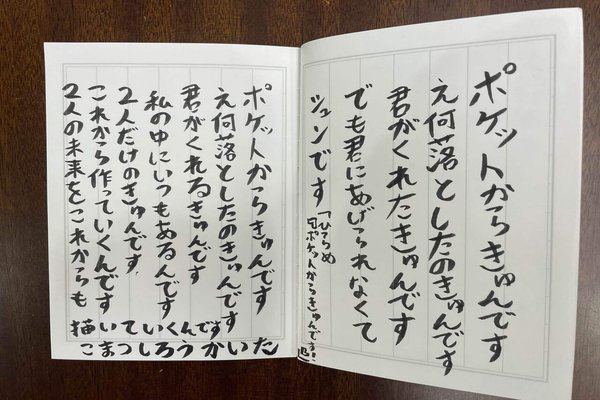 ポケットからきゅんです
え何落としたのきゅんです
君がくれたきゅんです
でも君にあげられなくて
シュンです
「ひらめ
『ポケットからきゅんです!』
ポケットからきゅんです
え何落としたのきゅんです
君がくれるきゅんです
私の中にいつもあるんです
2人だけのきゅんです
これから作っていくんです
2人の未来をこれからも
描いていくんです
こまつしろうかいた